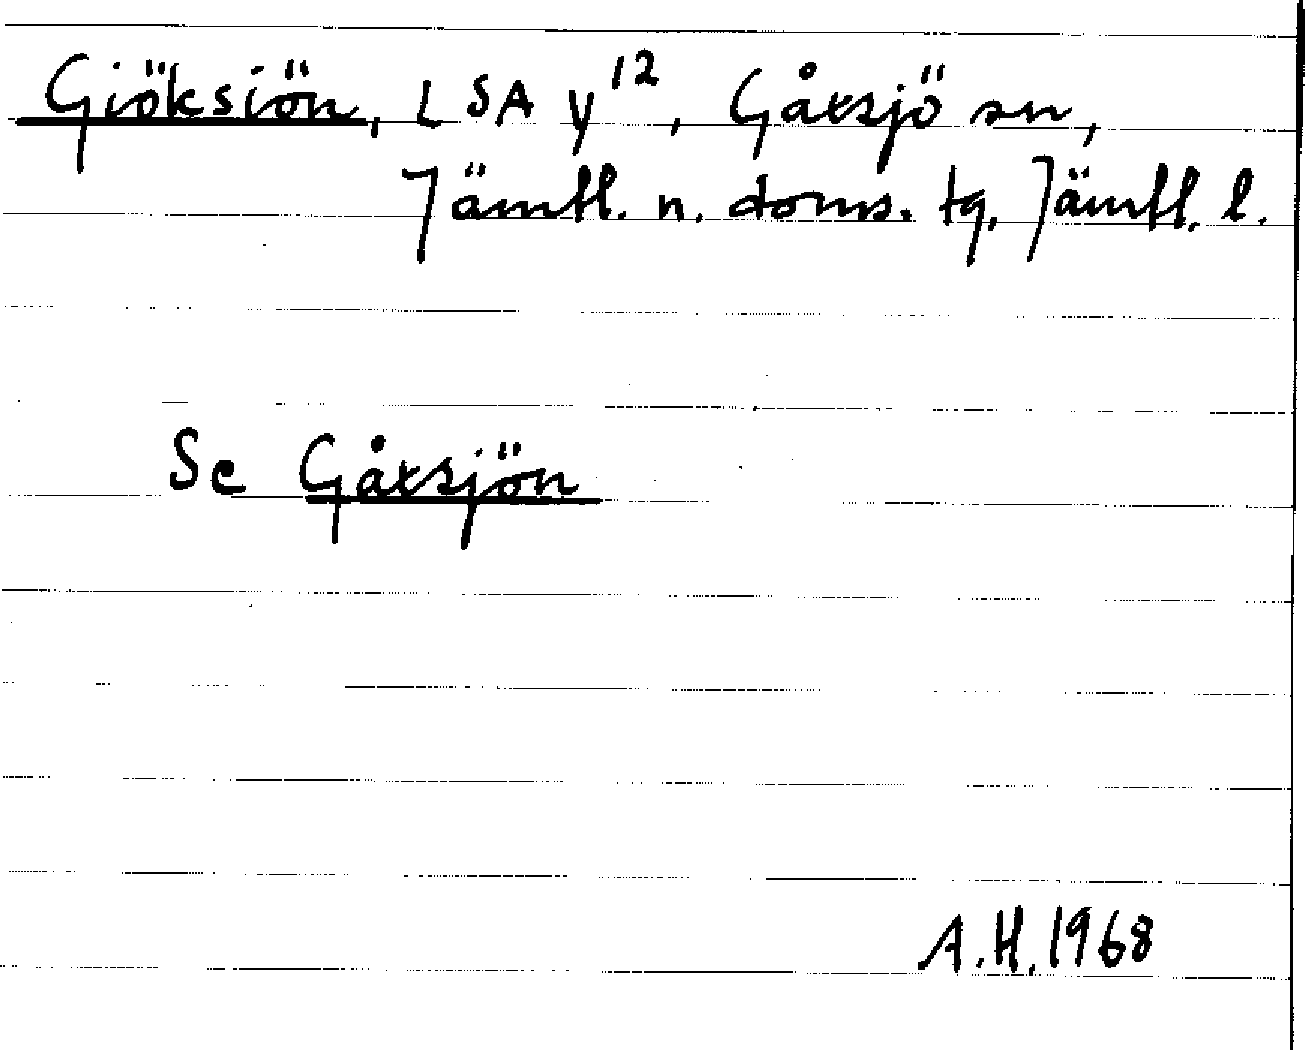 Giöksiön, LSA Y12, Gåxsjö sn,
Jämtl. n. doms. tg, Jämtl. l.
Se Gåxsjön
A.H. 1968